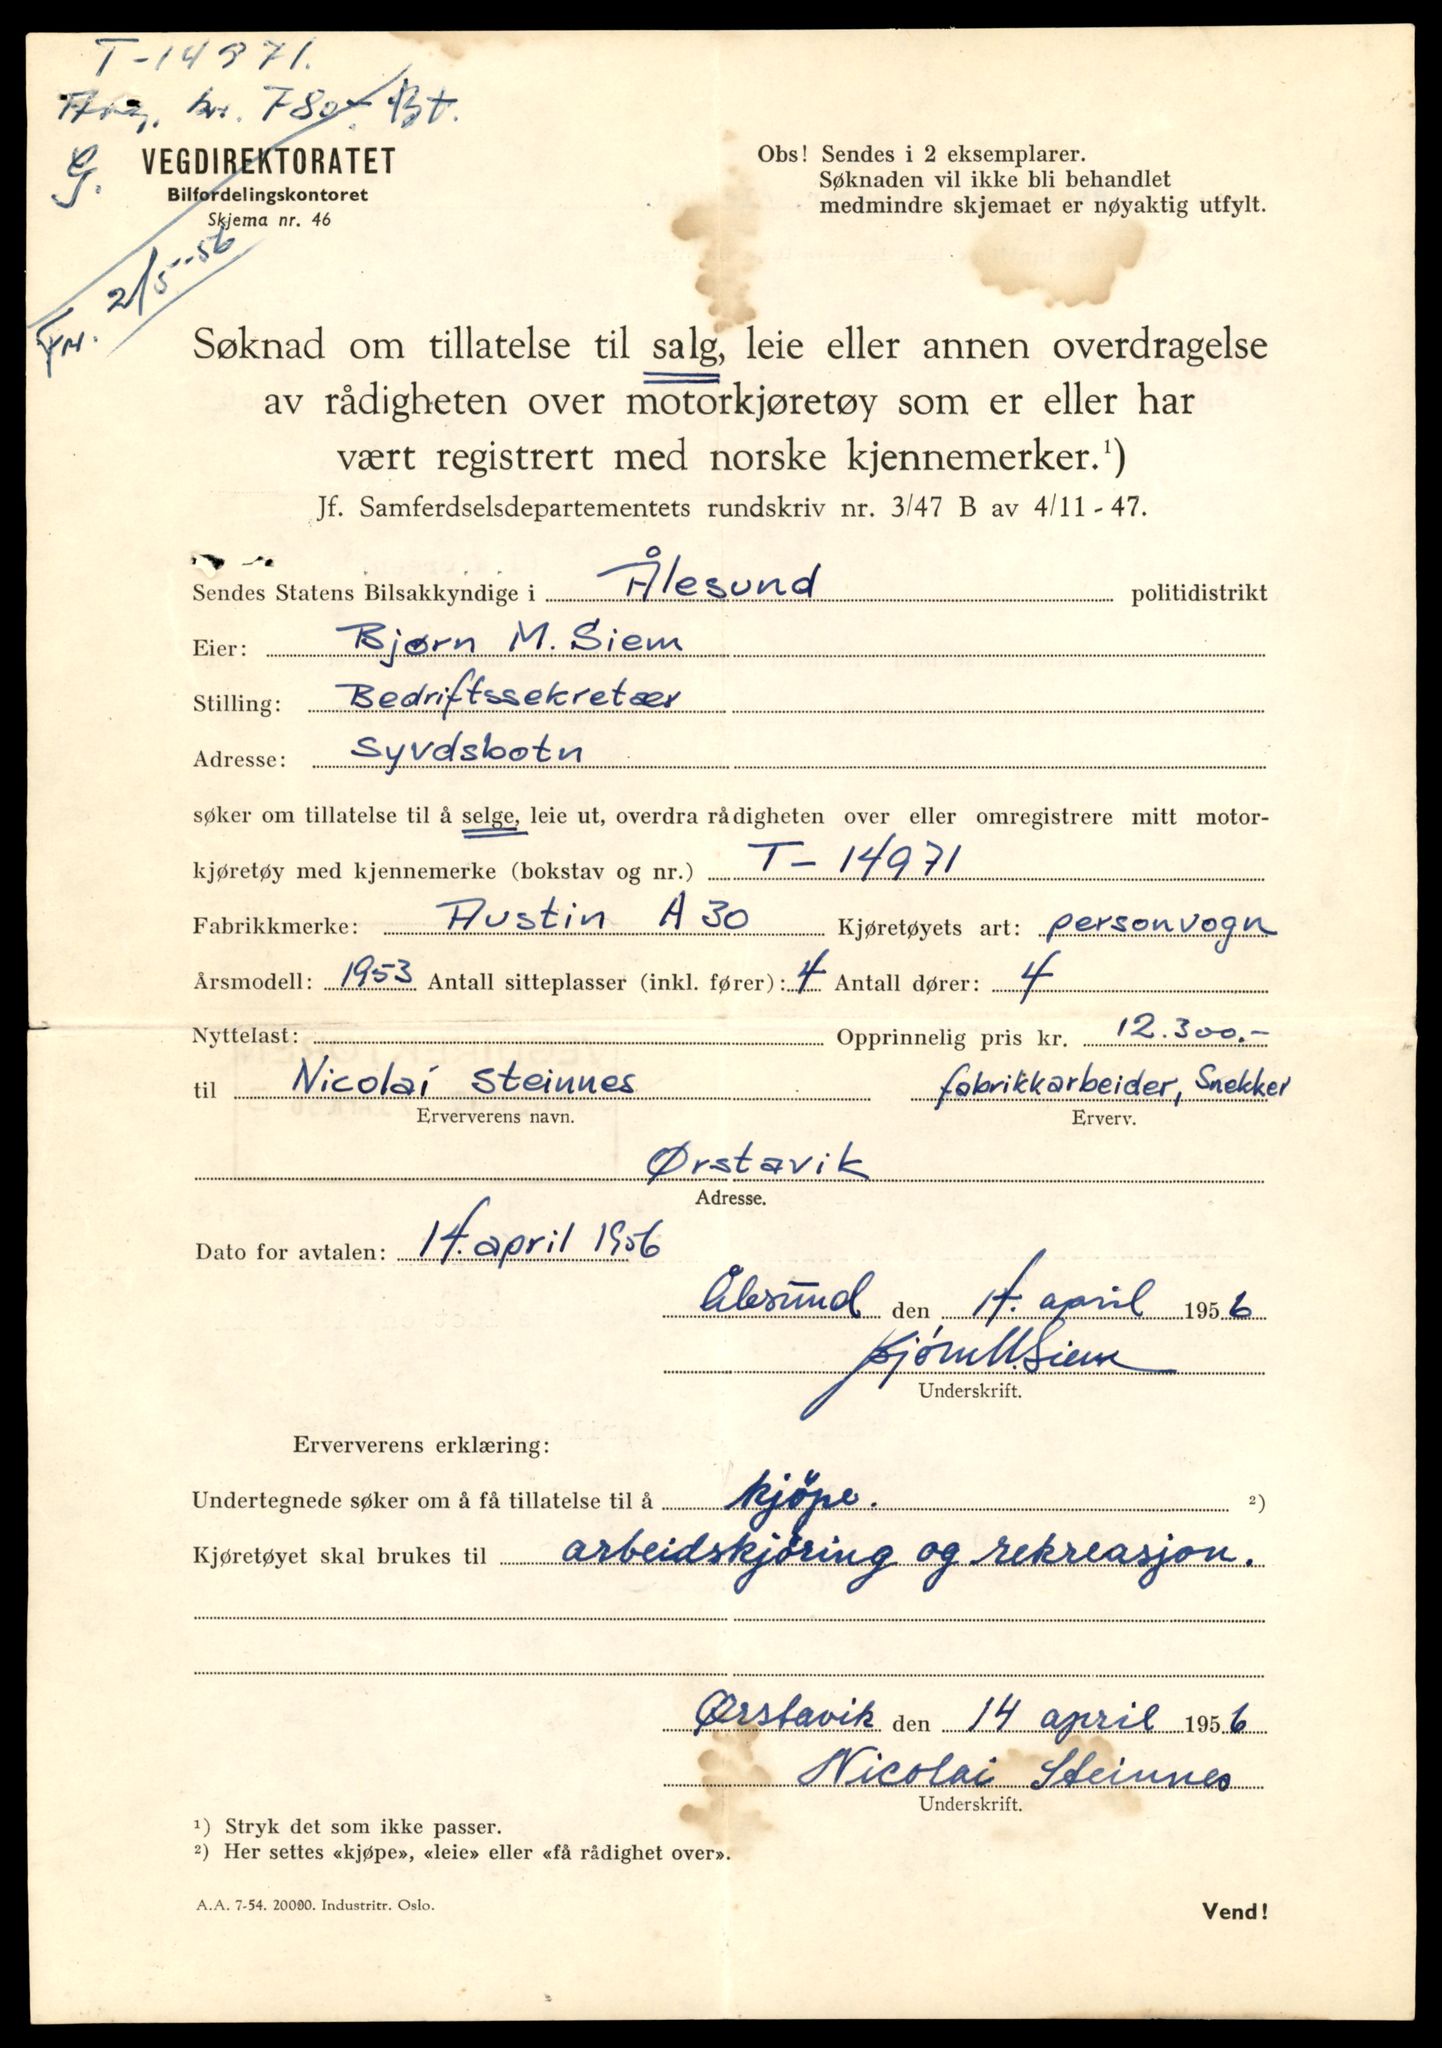 T-14971.
kr. 780,- Bt.
G.
VEGDIREKTORATET
Bilfordelingskontoret
Skjema nr. 46
2/5-56
Obs! Sendes i 2 eksemplarer.
Søknaden vil ikke bli behandlet
medmindre skjemaet er nøyaktig utfylt.
Søknad om tillatelse til salg, leie eller annen overdragelse
av rådigheten over motorkjøretøy som er eller har
vært registrert med norske kjennemerker.¹)
Jf. Samferdselsdepartementets rundskriv nr. 3/47 B av 4/11 - 47.
Sendes Statens Bilsakkyndige i Ålesund politidistrikt
Eier: Bjørn M. Siem
Stilling: Bedriftssekretær
Adresse: Syvdsbotn
søker om tillatelse til å selge, leie ut, overdra rådigheten over eller omregistrere mitt motor-
kjøretøy med kjennemerke (bokstav og nr.) T - 14971
Fabrikkmerke: Austin A 30 Kjøretøyets art: personvogn
Årsmodell: 1953 Antall sitteplasser (inkl. fører): 4 Antall dører: 4
Nyttelast: Opprinnelig pris kr. 12.300.-
til Nicolai Steinnes fabrikkarbeider, Snekker
Erververens navn. Erverv.
Ørstavik
Adresse.
Dato for avtalen: 14. april 1956
Ålesund den 14. april 1956
Bjørn M. Siem
Underskrift.
Erververens erklæring:
Undertegnede søker om å få tillatelse til å kjöpe. ²)
Kjøretøyet skal brukes til arbeidskjöring og rekreasjon.
Ørstavik den 14 april 1956
Nicolai Steinnes
Underskrift.
¹) Stryk det som ikke passer.
²) Her settes «kjøpe», «leie» eller «få rådighet over».
A.A. 7-54. 20000. Industritr. Oslo.
Vend!